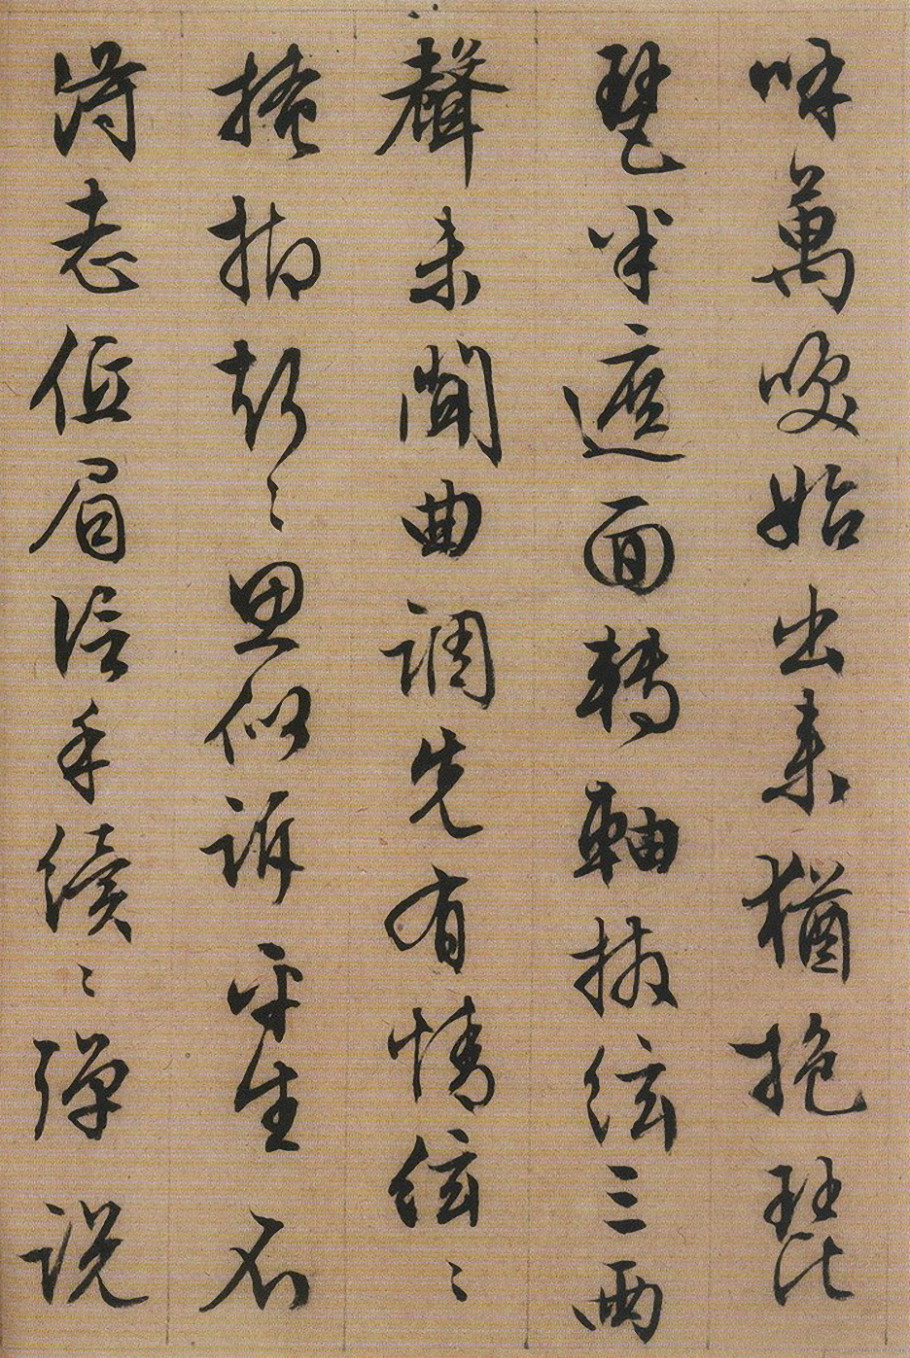 呼萬喚始出来猶抱琵
琶半遮面轉軸撥絃三兩
聲未聞曲調先有情絃〻
掩抑聲〻思似訴平生不
得志低眉信手續〻彈説